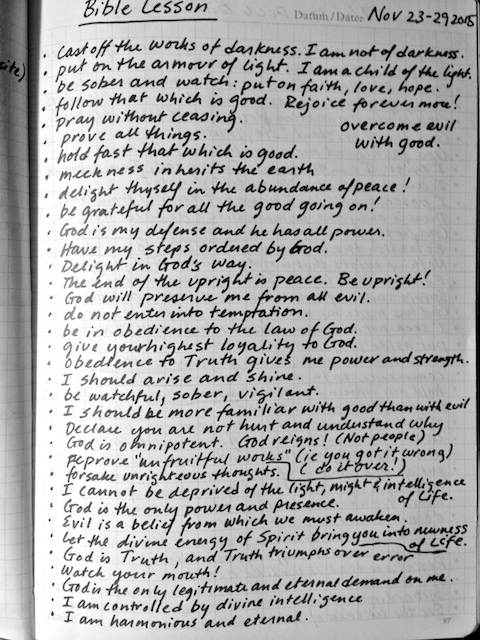 Bible Lesson
Datum / Date: Nov 23-29 2015
site)
• Cast off the works of darkness. I am not of darkness.
• put on the armour of light. I am a child of the light.
• be sober and watch: put on faith, love, hope.
• follow that which is good. Rejoice forevermore!
• pray without ceasing.
• prove all things.
overcome evil
with good.
• hold fast that which is good.
• meekness inherits the earth
• delight thyself in the abundance of peace!
• be grateful for all the good going on!
• God is my defense and he has all power.
• Have my steps ordered by God.
• Delight in God's way.
• The end of the upright is peace. Be upright!
• God will preserve me from all evil.
• do not enter into temptation.
• be in obedience to the law of God.
• give your highest loyality to God.
• Obedience to Truth gives me power and strength.
• I should arise and shine.
• be watchful, sober, vigilant.
• I should be more familiar with good than with evil
• Declare you are not hurt and understand why
• God is omnipotent. God reigns! (Not people)
• Reprove "unfruitful works" (ie you got it wrong)
• forsake unrighteous thoughts. (do it over!)
• I cannot be deprived of the light, might & intelligence
of Life.
• God is the only power and presence.
• Evil is a belief from which we must awaken.
• Let the divine energy of Spirit bring you into newness
of Life.
• God is Truth, and Truth triumphs over error
• Watch your mouth!
• God is the only legitimate and eternal demand on me.
• I am controlled by divine intelligence
• I am harmonious and eternal.
97